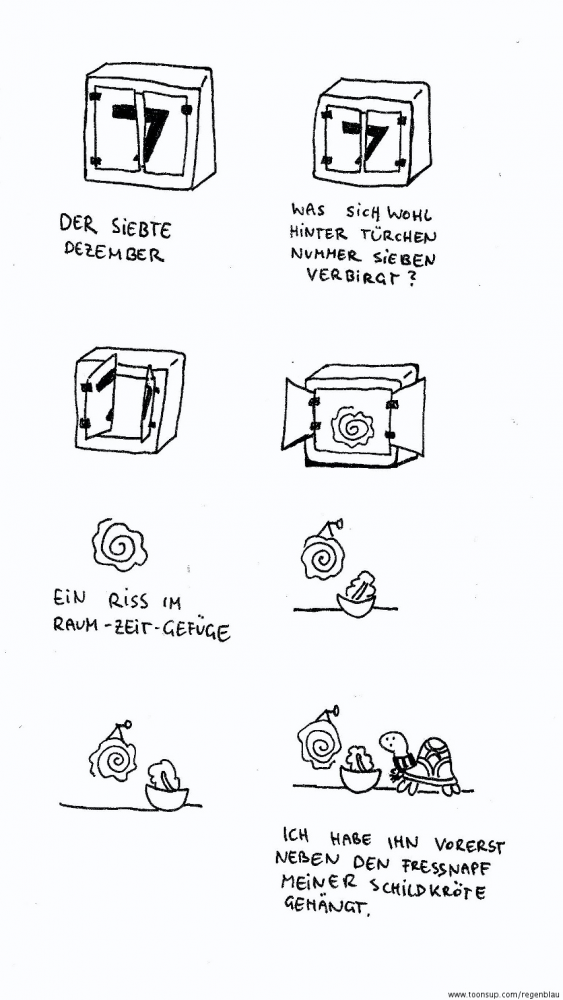 7
7
DER SIEBTE
DEZEMBER
WAS SICH WOHL
HINTER TÜRCHEN
NUMMER SIEBEN
VERBIRGT?
EIN RISS IM
RAUM-ZEIT-GEFÜGE
ICH HABE IHN VORERST
NEBEN DEN FRESSNAPF
MEINER SCHILDKRÖTE
GEHÄNGT.
www.toonsup.com/regenblau